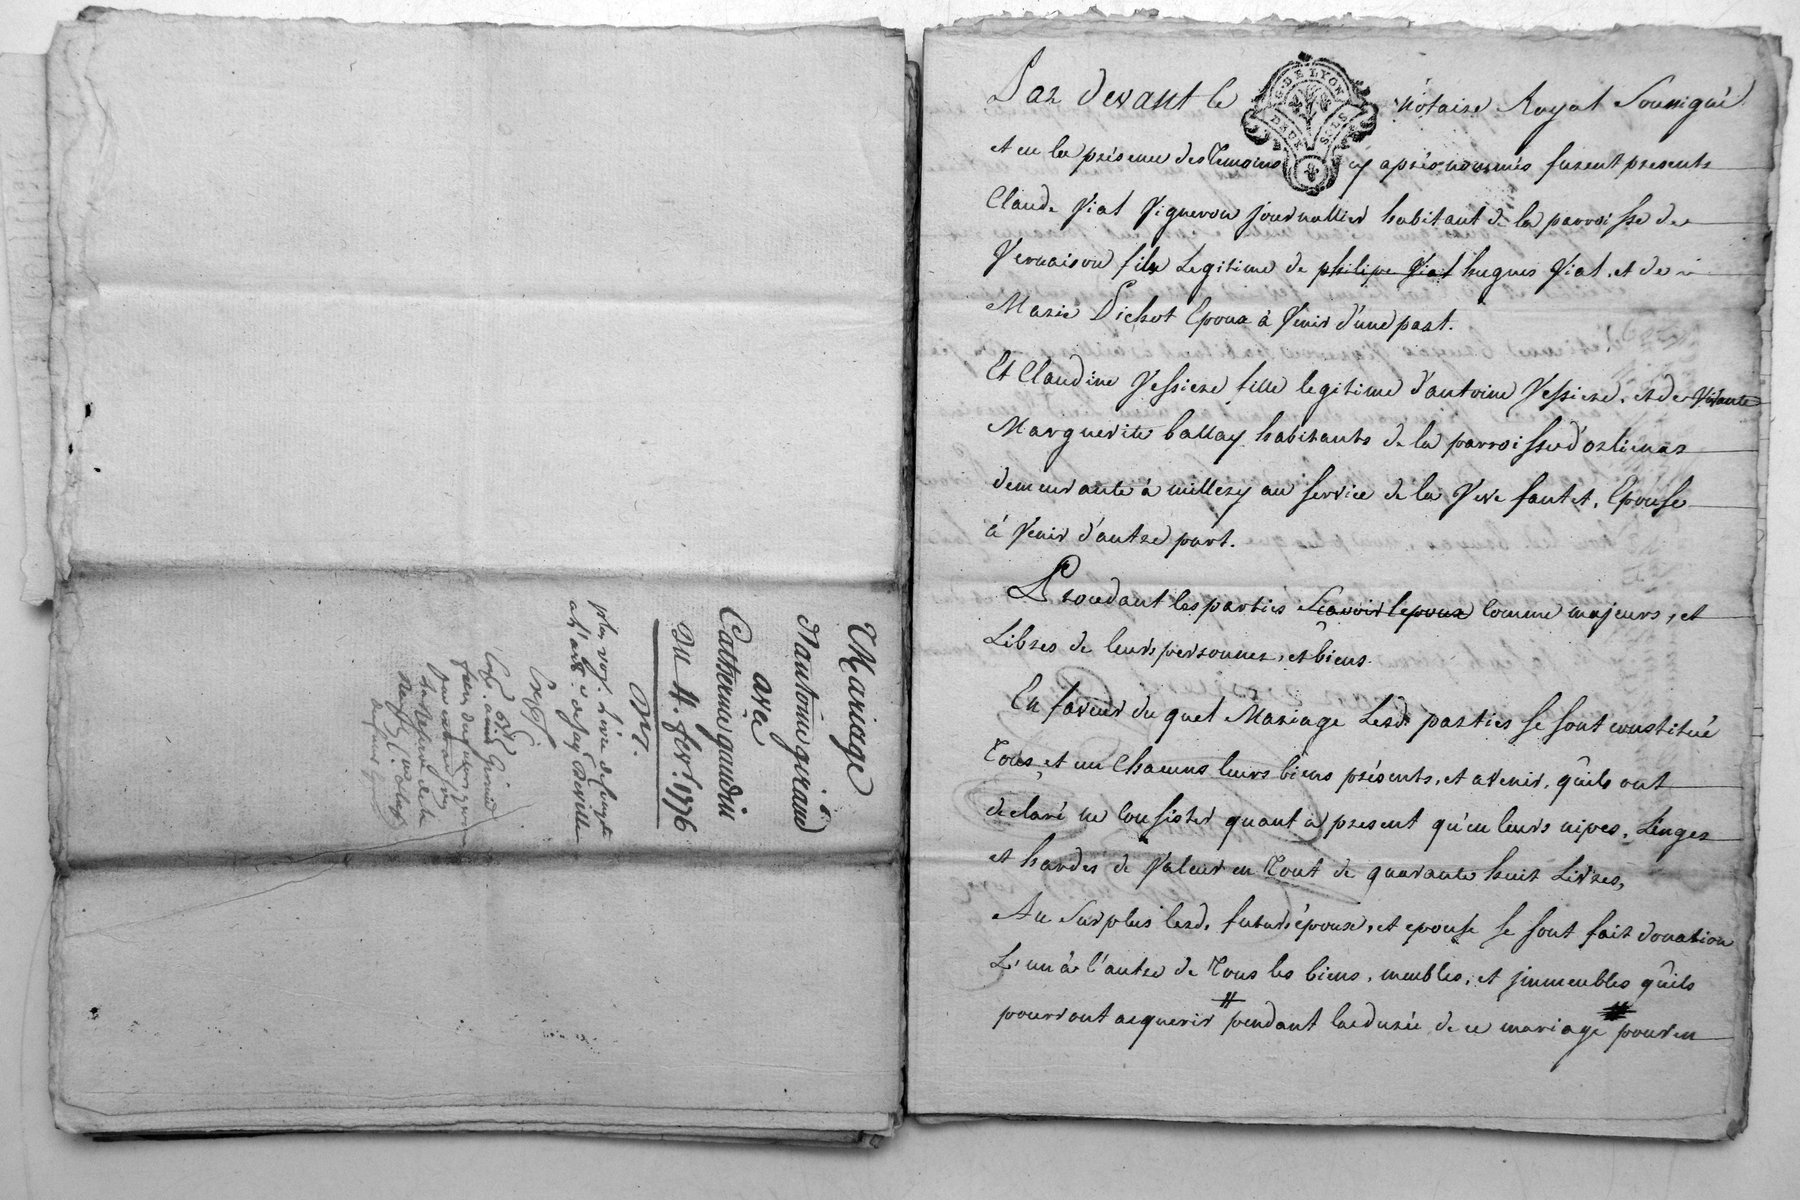 Mariage
d'antoine giraud
avec
Catherine gaudin
du 4. fevr. 1776
Par devant le notaire Royal Soussigné
G. DE LYON
DEUX SOLS
et en la présence des Temoins cy après nommés furent presents
Claude Viat Vigneron journallier habitant de la parroisse de
Vernaison fils Legitime de philipe Viat hugues Viat, et de
Marie Pichot Epoux à Venir d'une part.
Et Claudine Vessiere fille legitime d'antoine Vessiere, et de Vivante
Marguerite ballay habitants de la parroisse d'orlienas
demeurante à millery au service de la Veve fautet, Epouse
à Venir d'autre part.
Procedant les parties Scavoir lepoux Comme majeurs, et
Libres de leurs personnes, et biens.
En faveur du quel Mariage Lesd. parties se sont constitué
Tous et un Chacuns leurs biens présents, et avenir, qu'ils ont
declaré ne Consister quant à present qu'en leurs nipes, Linges
et hardes de Valeur en Tout de quarante huit Livres,
Au Surplus lesd. futurs époux, et epouse se sont fait donation
L'un à l'autre de Tous les biens, meubles, et jmmeubles qu'ils
pourront acquerir # pendant la durée de ce mariage # pour en